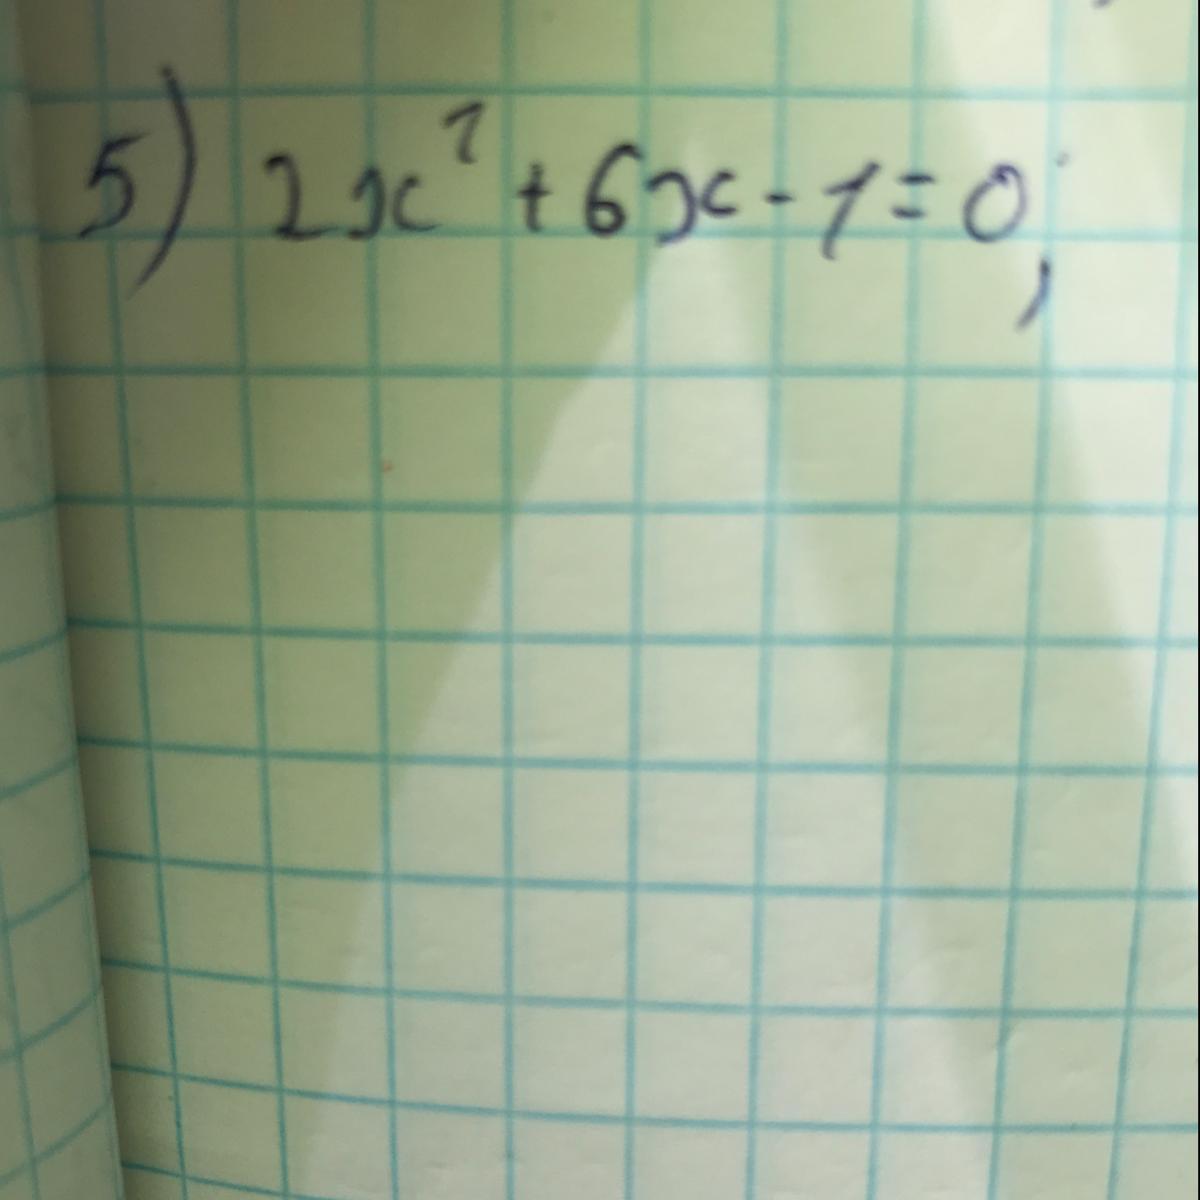 5) 2x² + 6x - 1 = 0;